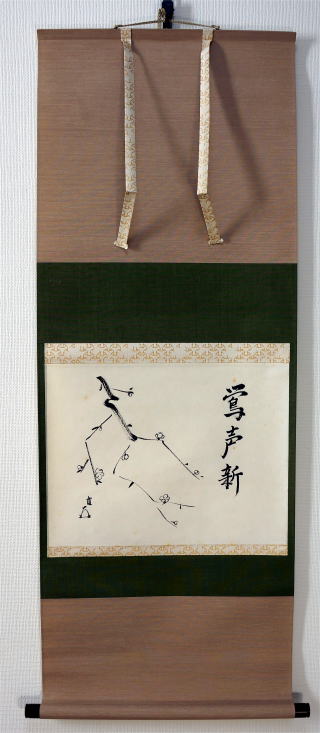 鶯声新